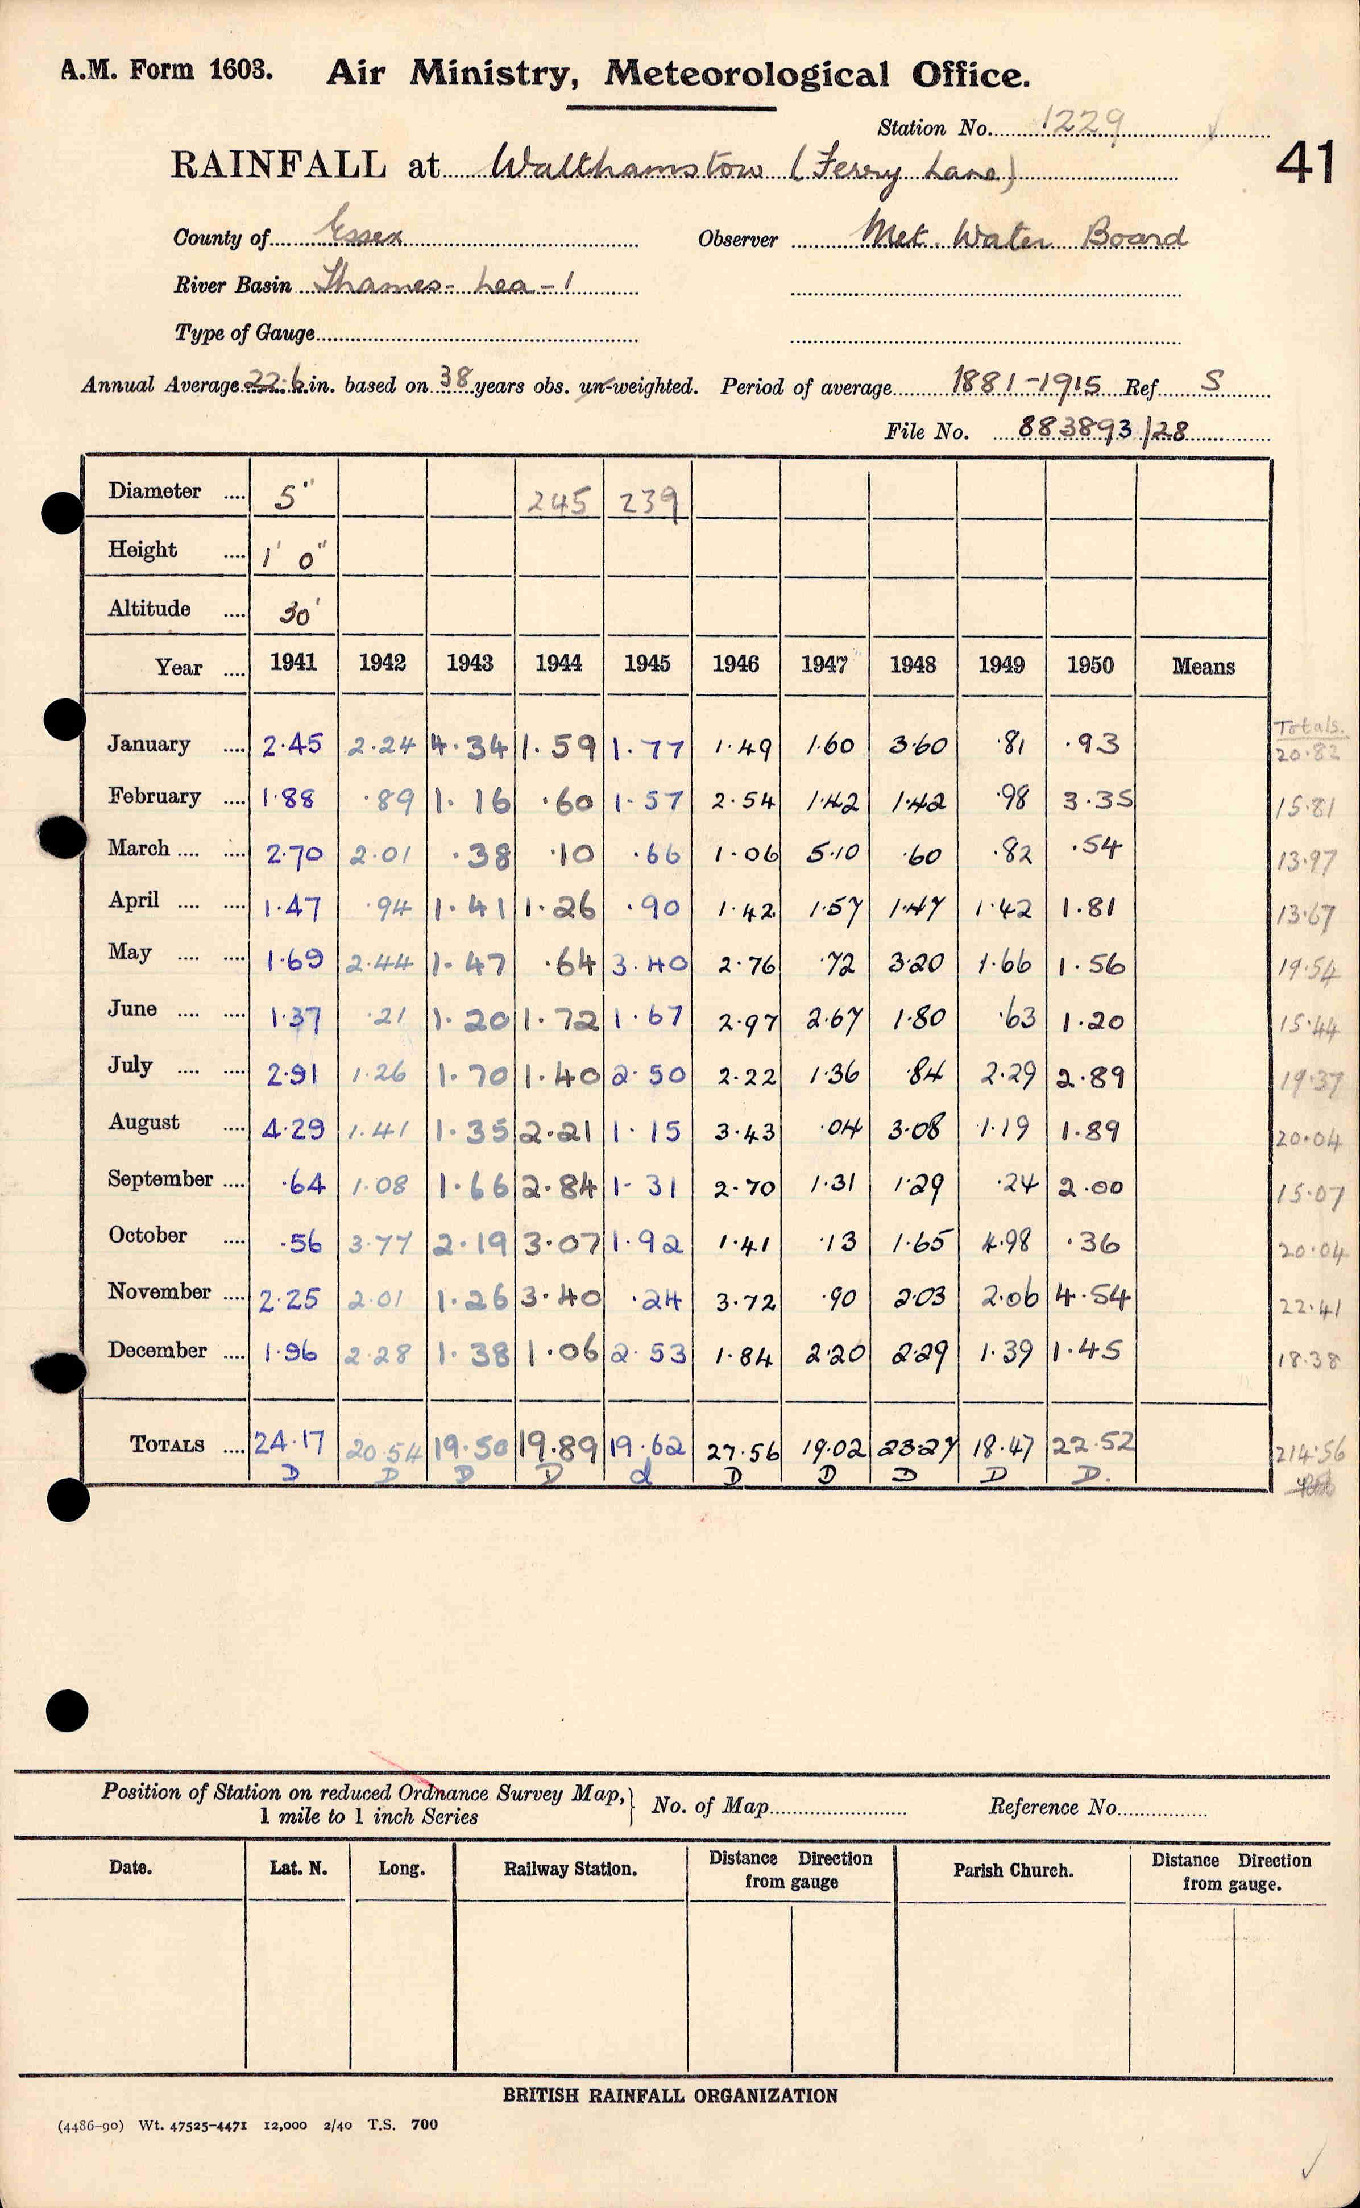 A.M. Form 1603. Air Ministry, Meteorological Office.
Station No. 1229
41
RAINFALL at Walthamstow (Ferry Lane)
County of Essex Observer Met. Water Board
River Basin Thames - Lea - 1
Type of Gauge
Annual Average 22.6 in. based on 38 years obs. un-weighted. Period of average 1881-1915 Ref S
File No. 883893/28
Diameter .... 5" 245 239
Height .... 1' 0"
Altitude .... 30'
Year .... 1941 1942 1943 1944 1945 1946 1947 1948 1949 1950 Means
Totals.
January .... 2.45 2.24 4.34 1.59 1.77 1.49 1.60 3.60 .81 .93 20.82
February .... 1.88 .89 1.16 .60 1.57 2.54 1.42 1.42 .98 3.35 15.81
March .... .... 2.70 2.01 .38 .10 .66 1.06 5.10 .60 .82 .54 13.97
April .... .... 1.47 .94 1.41 1.26 .90 1.42 1.57 1.47 1.42 1.81 13.67
May .... .... 1.69 2.44 1.47 .64 3.40 2.76 .72 3.20 1.66 1.56 19.54
June .... .... 1.37 .21 1.20 1.72 1.67 2.97 2.67 1.80 .63 1.20 15.44
July .... .... 2.91 1.26 1.70 1.40 2.50 2.22 1.36 .84 2.29 2.89 19.37
August .... 4.29 1.41 1.35 2.21 1.15 3.43 .04 3.08 1.19 1.89 20.04
September .... .64 1.08 1.66 2.84 1.31 2.70 1.31 1.29 .24 2.00 15.07
October .... .56 3.77 2.19 3.07 1.92 1.41 .13 1.65 4.98 .36 20.04
November .... 2.25 2.01 1.26 3.40 .24 3.72 .90 2.03 2.06 4.54 22.41
December .... 1.96 2.28 1.38 1.06 2.53 1.84 2.20 2.29 1.39 1.45 18.38
TOTALS .... 24.17 20.54 19.50 19.89 19.62 27.56 19.02 23.27 18.47 22.52 214.56
D D D D d D D D D D.
Position of Station on reduced Ordnance Survey Map, } No. of Map Reference No.
1 mile to 1 inch Series
Date. Lat. N. Long. Railway Station. Distance Direction from gauge Parish Church. Distance Direction from gauge.
BRITISH RAINFALL ORGANIZATION
(4486-90) Wt. 47525-4471 12,000 2/40 T.S. 700